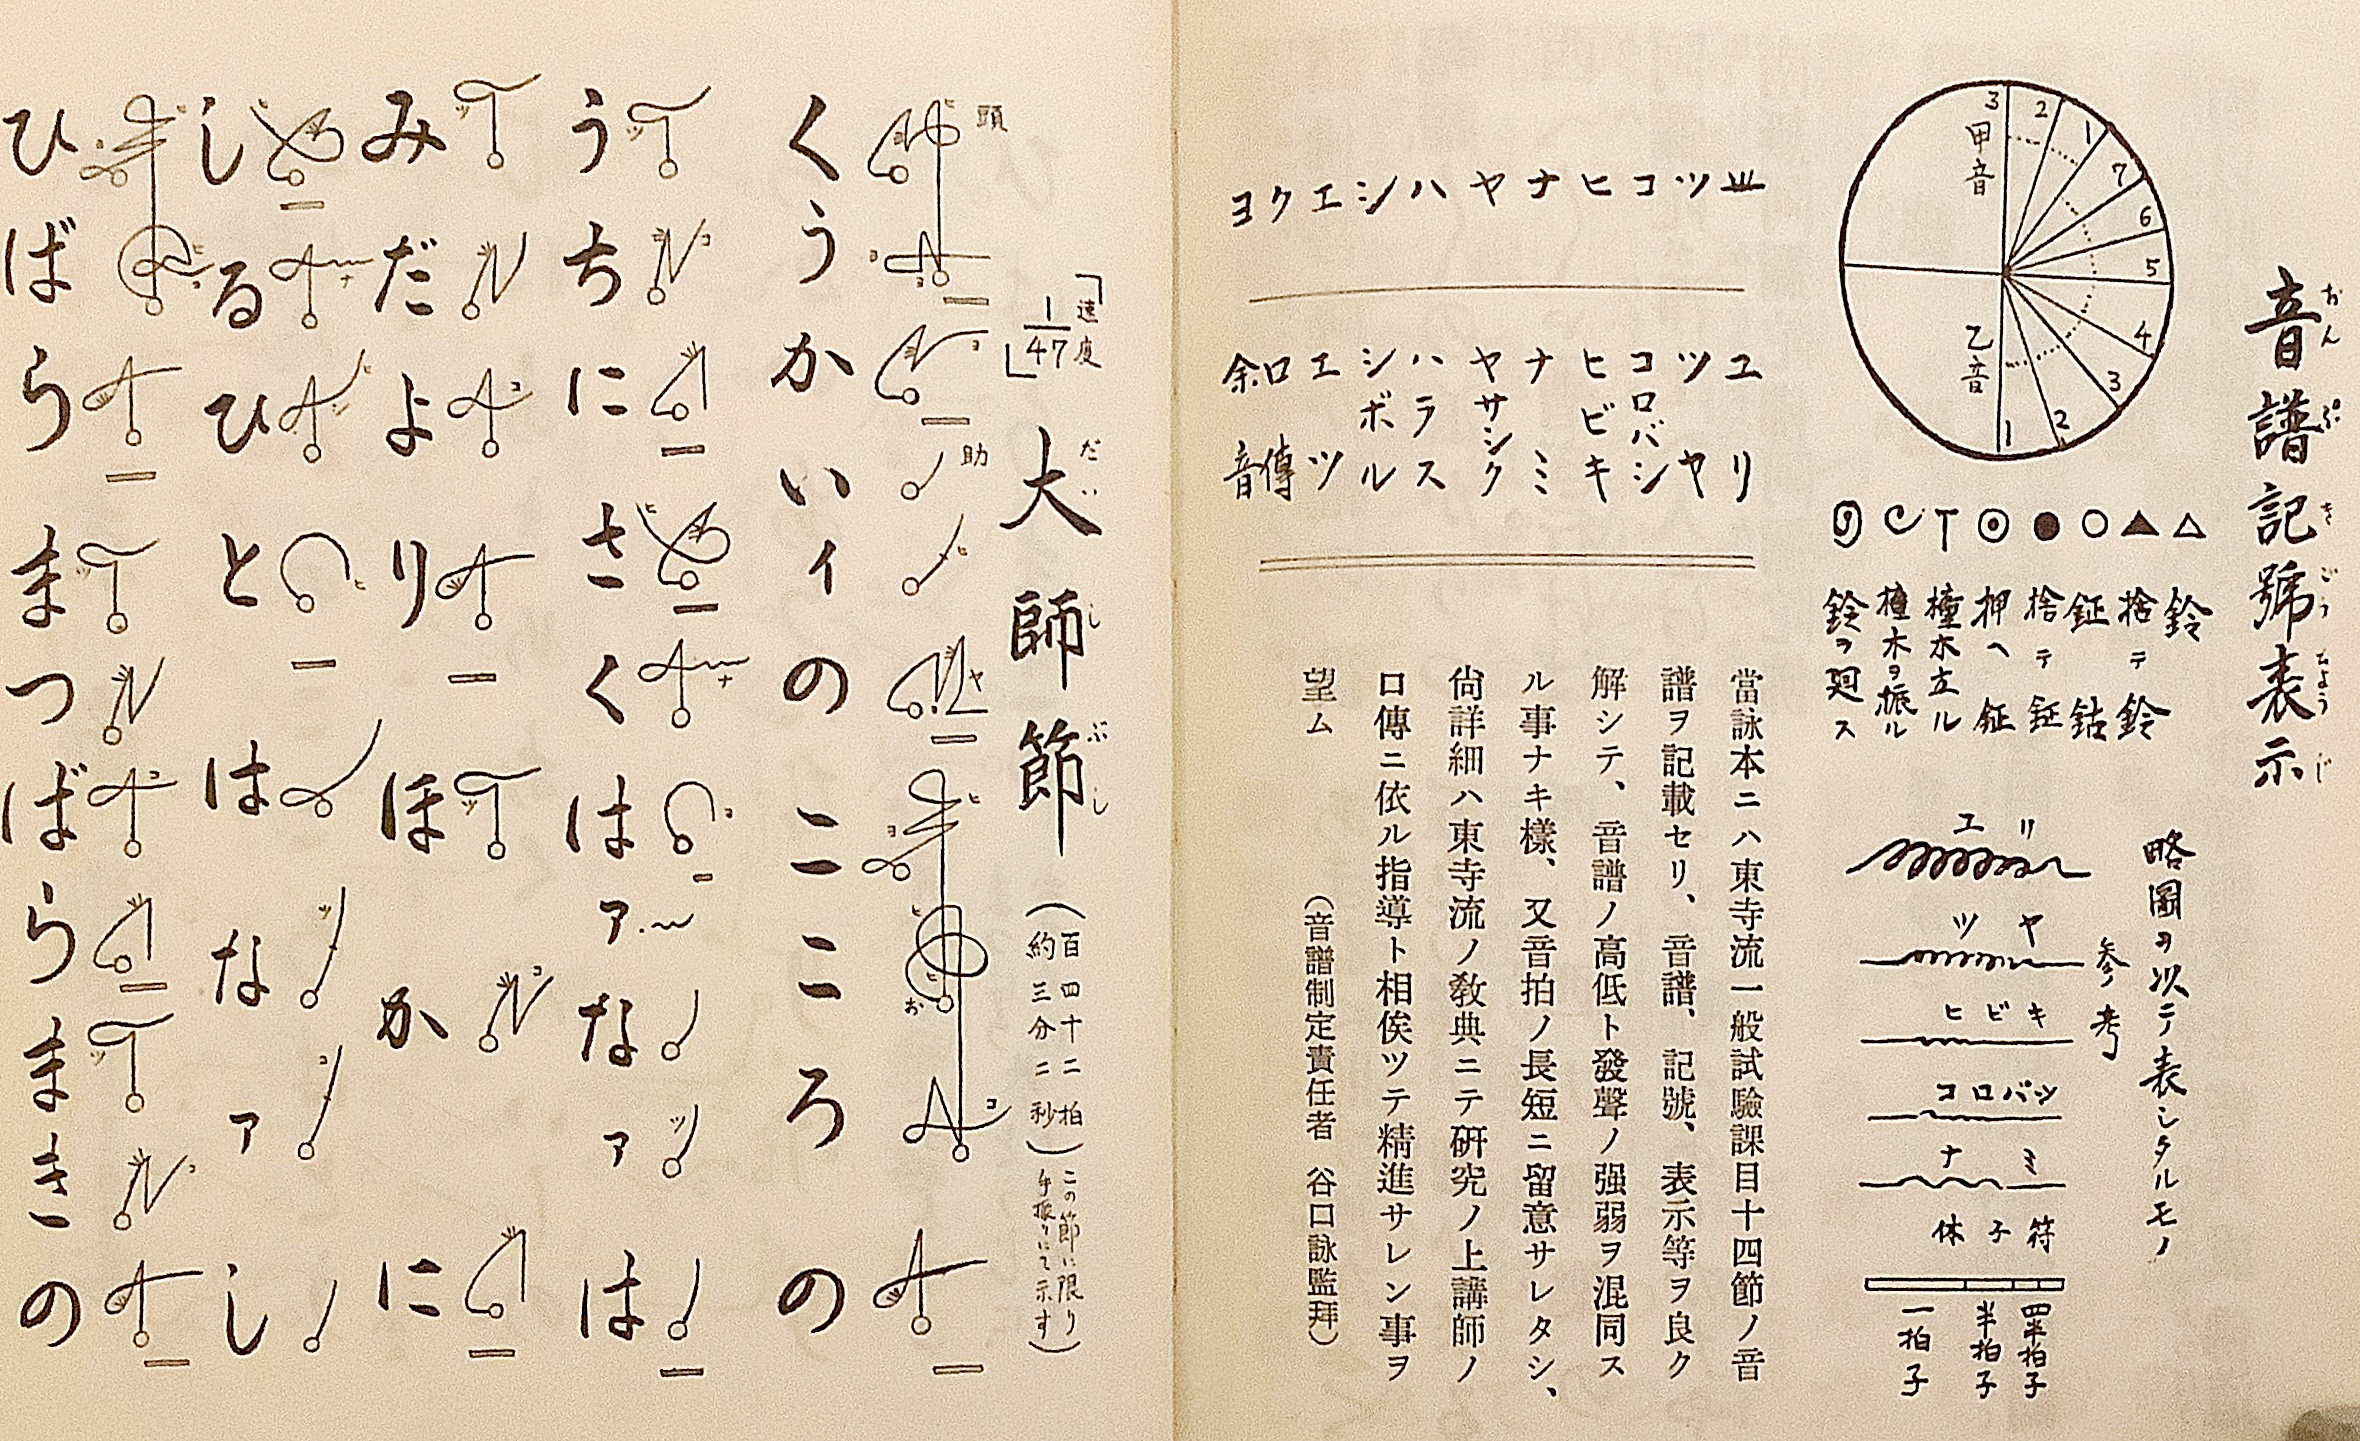 音譜記號表示
おんぷきごうひょうじ
3 2 1 7 6 5 4 3 2 1
甲音
乙音
△ 鈴
▲ 捨テ鈴
○ 鉦鈷
● 捨テ鉦
◎ 押ヘ鉦
橦木立ル
橦木ヲ振ル
鈴ヲ廻ス
略圖ヲ以テ表シタルモノ
参考
ユリ
ツヤ
ヒビキ
コロバシ
ナミ
休子符
四半拍子
半拍子
一拍子
ツ ツヤ
コ コロバシ
ヒ ヒビキ
ナ ナミ
ヤ ヤサシク
ハ ハラス
シ シボル
エ エツ
ユリ
ク 口傳
ヨ 余音
當詠本ニハ東寺流一般試驗課目十四節ノ音
譜ヲ記載セリ、音譜、記號、表示等ヲ良ク
解シテ、音譜ノ高低ト發聲ノ强弱ヲ混同ス
ル事ナキ樣、又音拍ノ長短ニ留意サレタシ、
尙詳細ハ東寺流ノ敎典ニテ硏究ノ上講師ノ
口傳ニ依ル指導ト相俟ツテ精進サレン事ヲ
望ム
（音譜制定責任者 谷口詠監拜）
速度
1/47
大師節
だいしぶし
（百四十二拍
約三分二秒）
（この節に限り
手振りにて示す）
頭
助
くうかいィのこころの
うちにさくはァなァは
みだよりほかに
しるひとはなァし
ひばらまつばらまきの